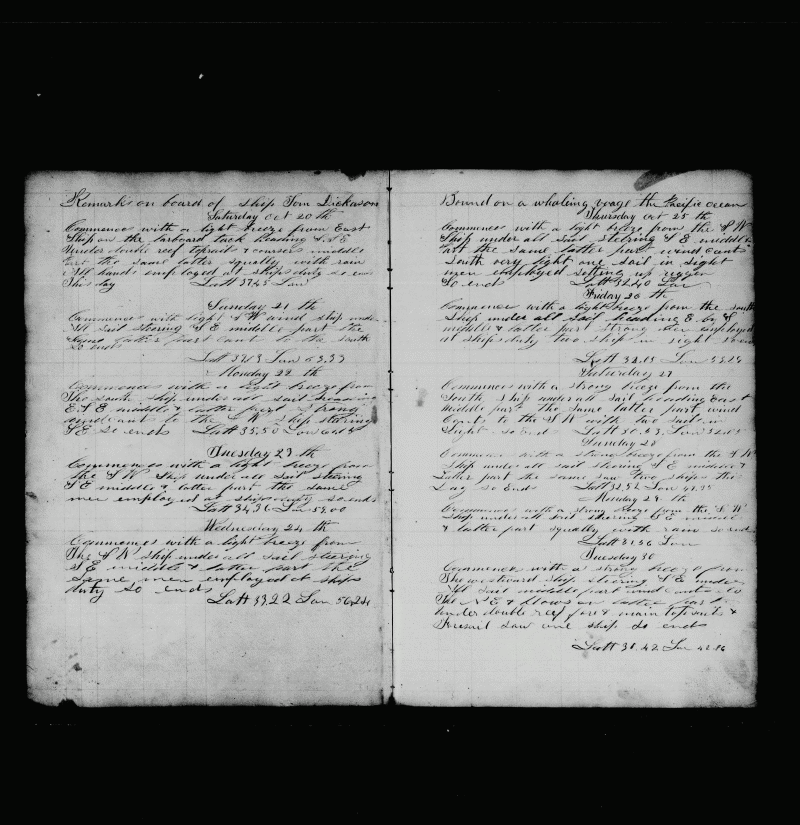 Remarks on board of ship Tom Dickason
Saturday Oct 20 th
Commences with a light breeze from East
Ship on the larboard tack heading S S E
Under double reef topsails & courses middle
part the same latter squally with rain
All hands employed at ships duty so ends
This day Latt 37.45 Lon
Sunday 21 th
Commences with light S W wind ship under
All sail steering S E middle part the
same latter part cant to the South
So ends
Latt 37.13 Lon 63.33
Monday 22 th
Commences with a light breeze from
The south ship under all sail heading
E S E middle & latter part strong
wind cant to the ship steering
S E so ends Latt 35,50 Lon
Tuesday 23 th
Commences with a light breeze from
The S W Ship under all sail steering
S E middle & latter part the same
men employed at ships duty so ends
Latt 34,31 Lon 59,00
Wednesday 24 th
Commences with a light breeze from
The S W ship under all sail steering
S E middle & latter part the
same men employed at ships
duty so ends
Latt 33,22 Lon 56,24
Bound on a whaling voage the Pacific ocean
Thursday Oct 25 th
Commences with a light breeze from the S W
Ship under all sail steering S E middle
part the same latter part wind cants
South very light one sail in sight
men employed setting up riggen
So ends Latt 32,40 Lon
Friday 26 th
Commences with a light breeze from the south
Ship under all sail heading E by S
middle & latter part strong men employed
at ships duty two ship in sight so ends
Latt 32.13 Lon 53,24
Saturday 27
Commences with a strong breeze from the
South Ship under all sail heading East
Middle part the same latter part wind
Cants to the S W with two sail in
Sight so Ends Latt Lon
Sunday 28
Commences with a strong breeze from the S W
Ship under all sail steering S E middle &
Latter part the same saw two ships this
Day so Ends Latt 31,32 Lon
Monday 29 th
Commences with a strong breeze from the S W
Ship under all sail steering S E middle
& latter part squally with rain so ends
Latt 31,36 Lon
Tuesday 30
Commences with a strong breeze from
The westward ship steering S E under
All sail middle part wind cants to
The N E & blows on latter part
under double reef fore & main topsails &
Foresail saw one ship so ends
Latt 31.42 Lon 42.16